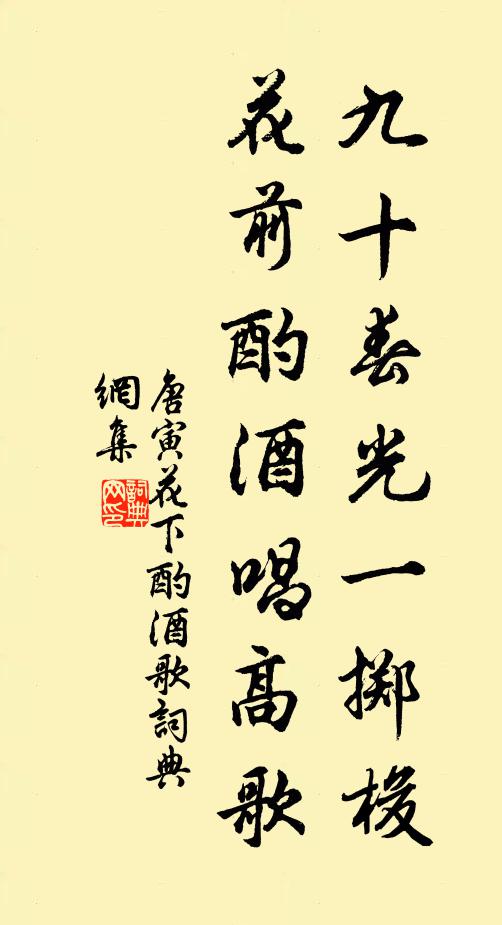 九十春光一掷梭
花前酌酒唱高歌
唐寅花下酌酒歌詞典
網集
詞典
网印